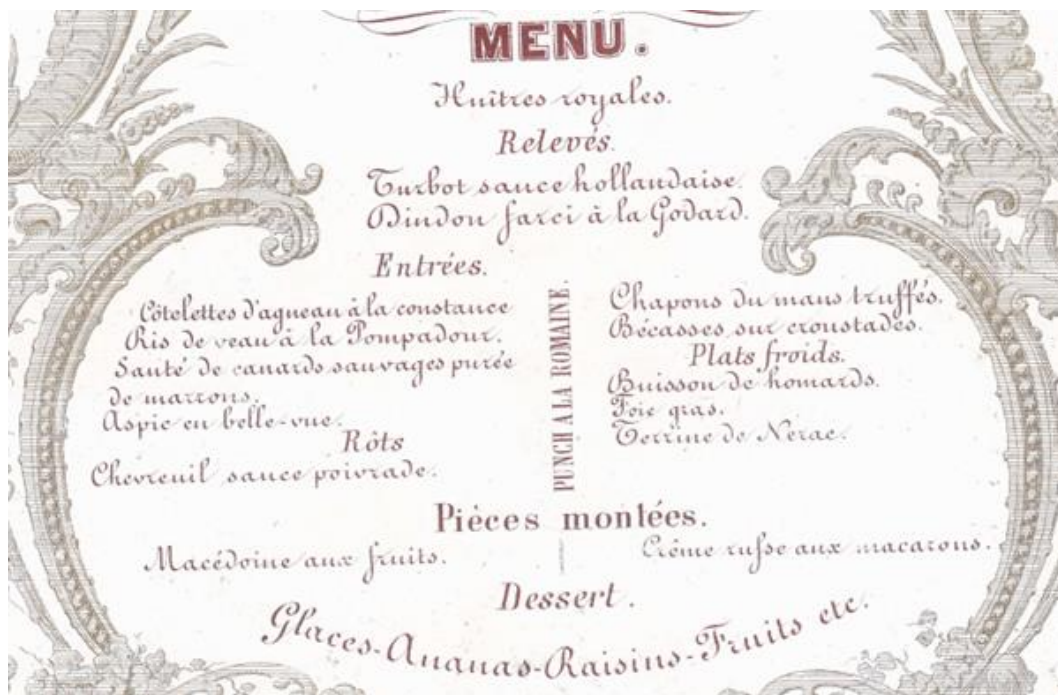 MENU.
Huîtres royales.
Relevés.
Turbot sauce hollandaise.
Dindon farci à la Godard.
Entrées.
Côtelettes d'agneau à la constance
Ris de veau à la Pompadour.
Sauté de canards sauvages purée
de marrons.
Aspic en belle-vue.
Rôts
Chevreuil sauce poivrade.
PUNCH A LA ROMAINE.
Chapons du mans truffés.
Bécasses sur croustades.
Plats froids.
Buisson de homards.
Foie gras.
Terrine de Nerac.
Pièces montées.
Macédoine aux fruits.
Crême rufse aux macarons.
Dessert.
Glaces-Ananas-Raisins-Fruits etc.